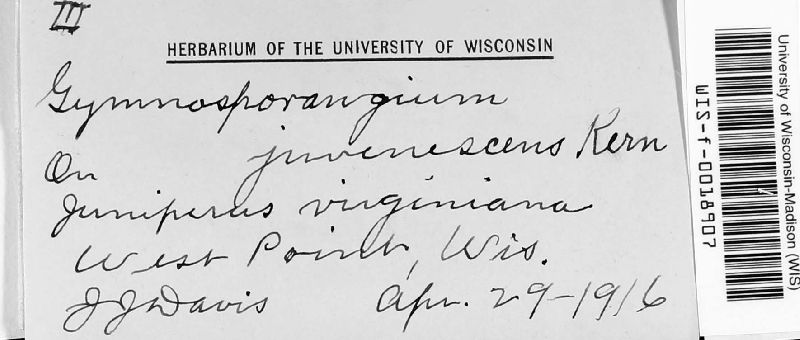 III
HERBARIUM OF THE UNIVERSITY OF WISCONSIN
Gymnosporangium
juvenescens Kern
On
Juniperus virginiana
West Point, Wis.
J J Davis Apr. 29-1916
University of Wisconsin-Madison (WIS)
WIS-f-0018907